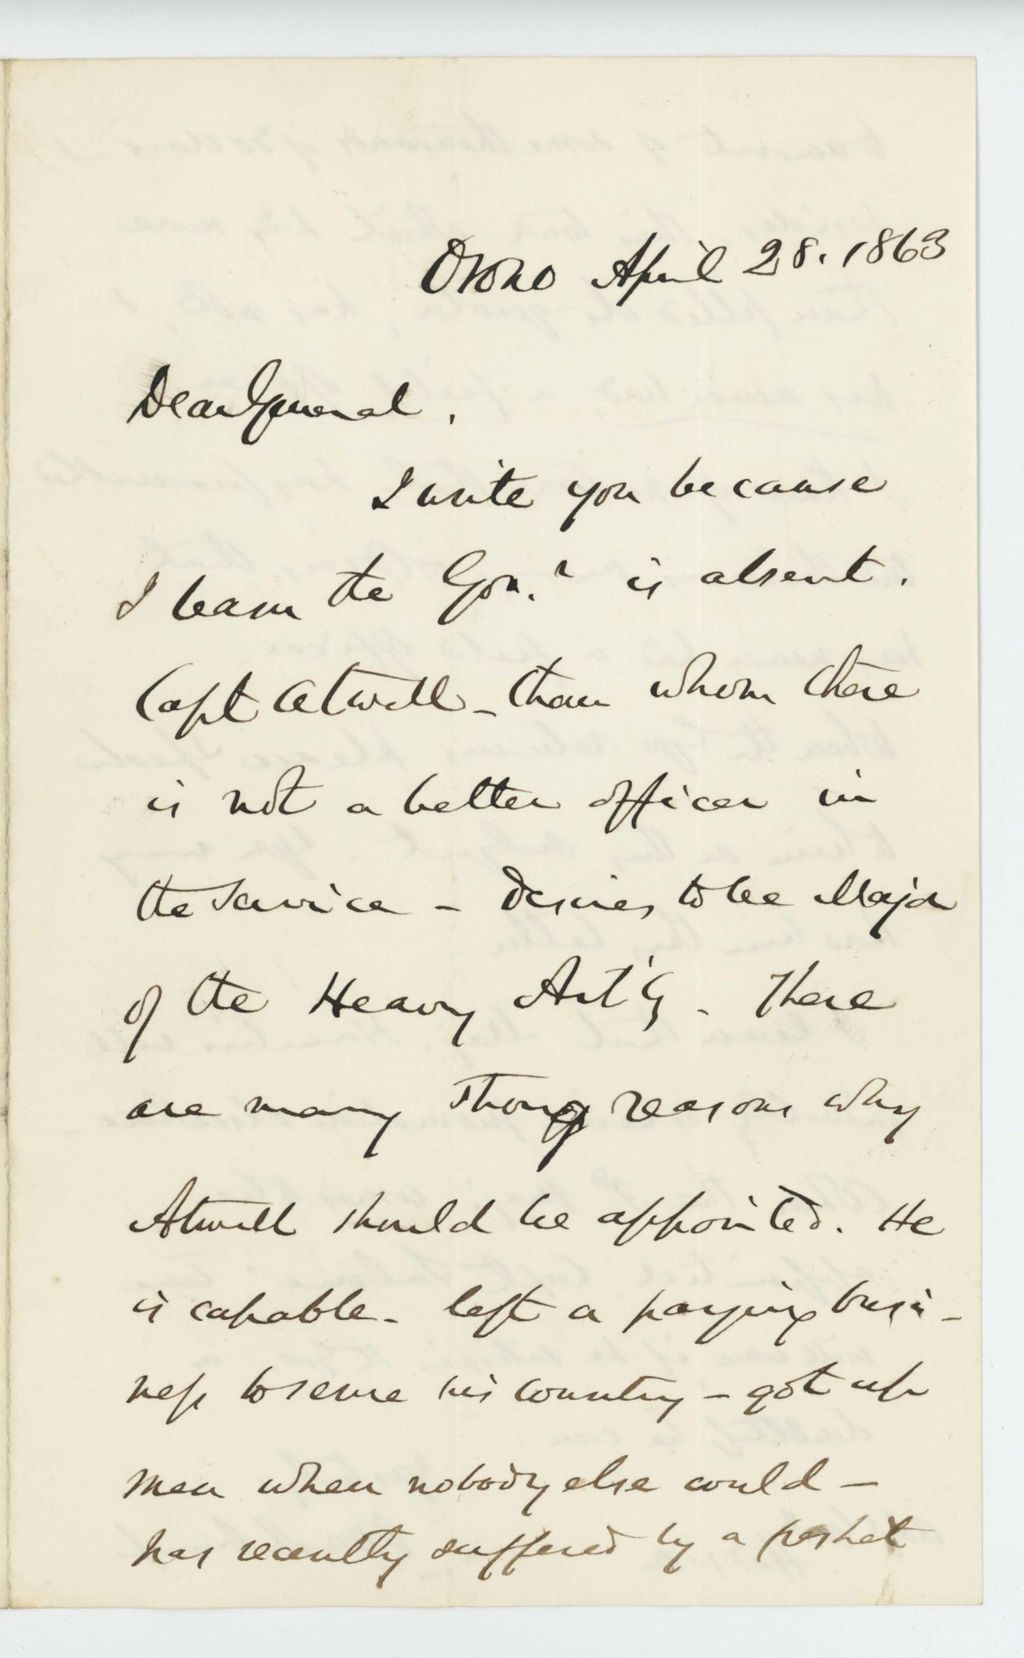 Orono April 28. 1863
Dear General.
I write you because
I learn the Gov.r is absent.
Capt Atwell - than whom there
is not a better officer in
the service - desires to be Major
of the Heavy Art'y. There
are many strong reasons why
Atwell should be appointed. He
is capable - left a paying busi-
ness to serve his country - got up
men when nobody else could -
has recently suffered by a freshet